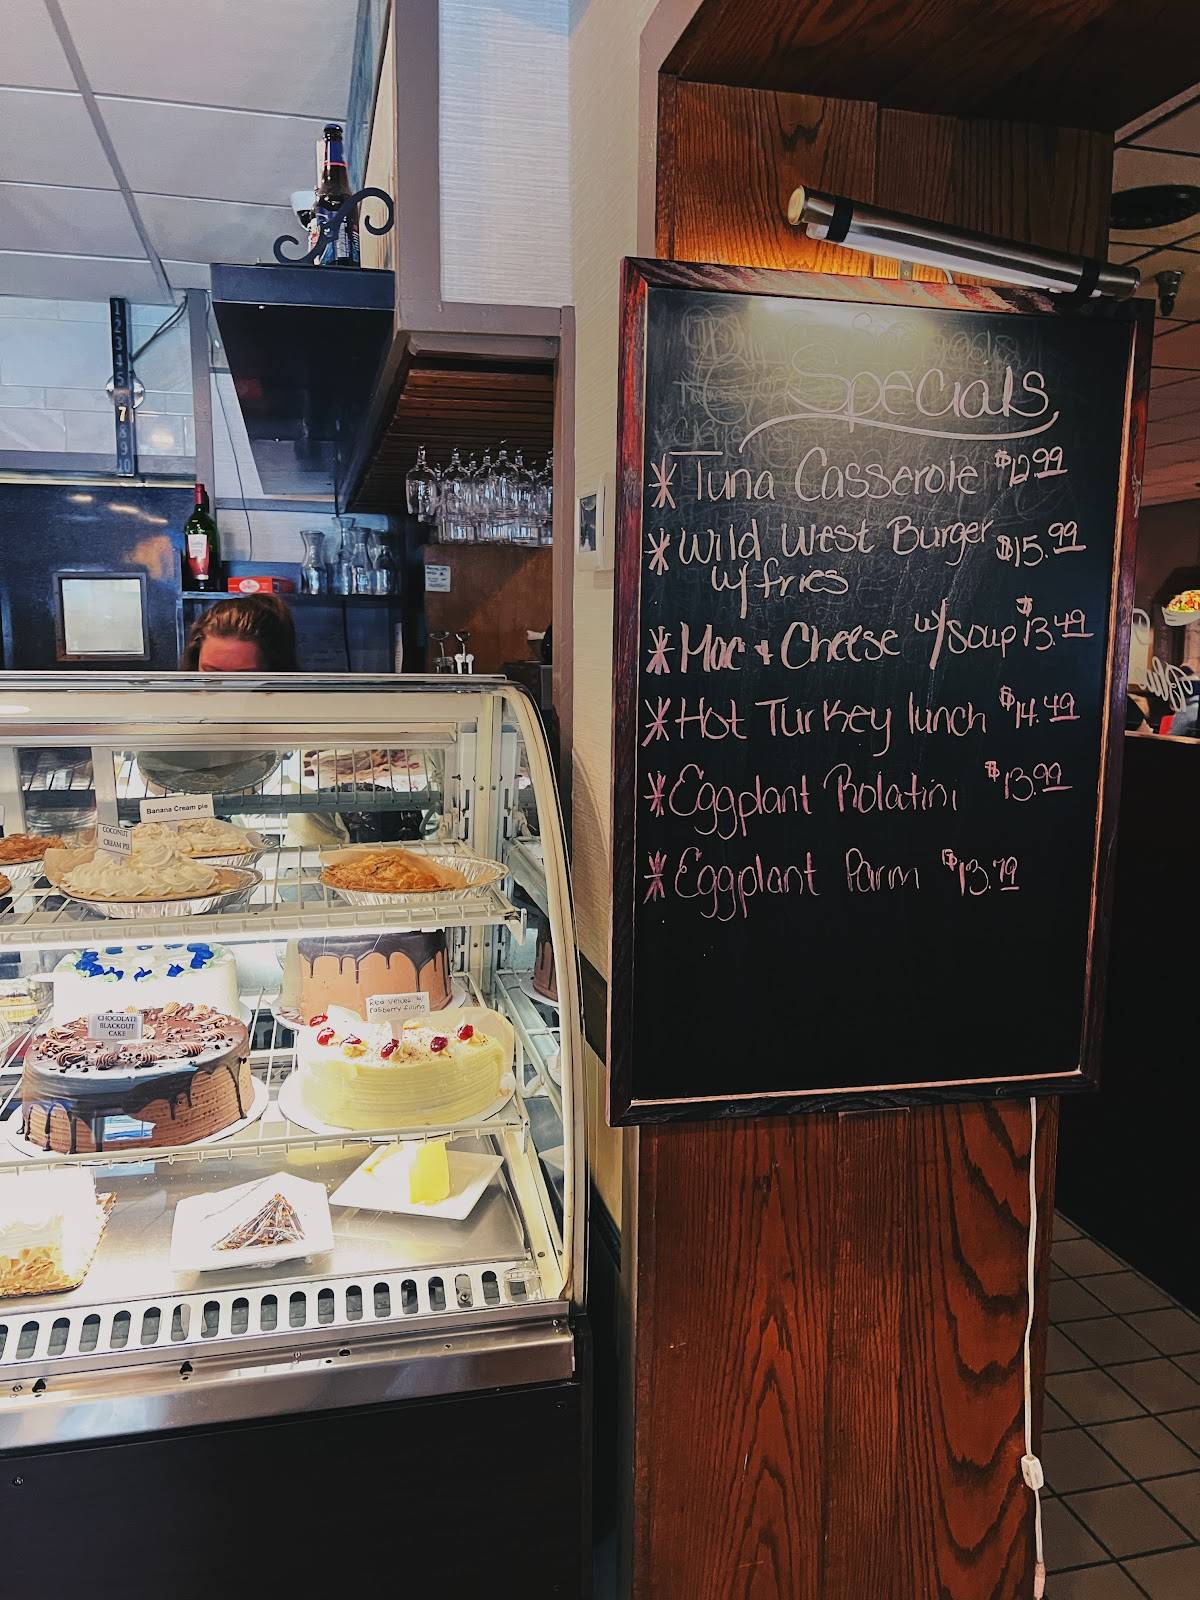 Specials
* Tuna Casserole $12.99
* Wild West Burger $15.99
w/ fries
* Mac + Cheese w/ Soup $13.49
* Hot Turkey lunch $14.49
* Eggplant Rolatini $13.99
* Eggplant Parm $13.79
1
2
3
4
5
7
8
9
10
Banana Cream pie
COCONUT
CREAM PIE
Red Velvet w/
rasberry filling
CHOCOLATE
BLACKOUT
CAKE